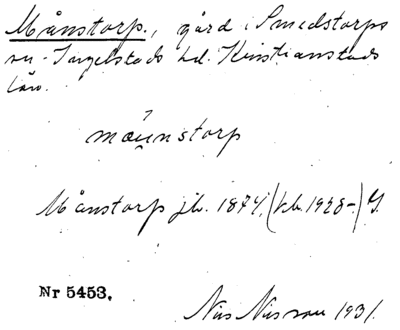 Månstorp., gård i Smedstorps
sn. Ingelstads hd. Kristianstads
län.
måunstorp
Månstorp jb. 1874. (kb. 1928-) G.
Nr 5453.
Nils Nilsson 1931.